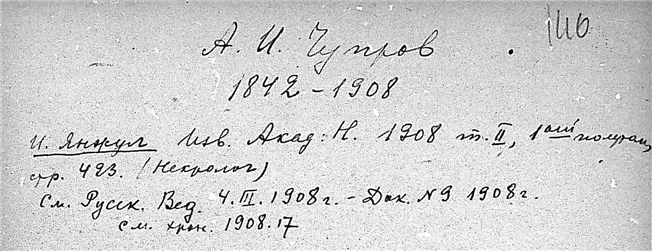 146
А. И. Чупров
1842 - 1908
И. Янжул Изв. Акад. Н. 1908 т. II, 1ый полутом,
стр. 423. (Некролог)
См. Русск. Вед. 4.III.1908 г. - Док. №9 1908 г.
см. хрон. 1908.17